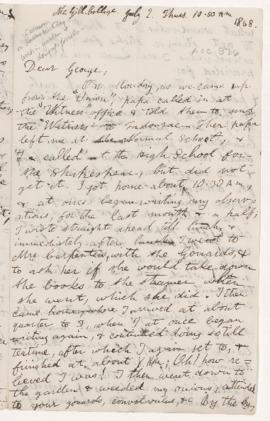 McGill College July 2. Thurs. 10.50 A.M.
1868.
Dear George,
On Monday, as we came up
from the Union, papa called in at
the Witness office & told them to
the Witness to Then papa
left me at Normal School, &
I called at the High School for
the Shakespere, but did not
get it. I got home about 10.30 A.M.,
& at once began writing my observ-
ations, for the last month & a half;
I wrote straight ahead till lunch, &
immediately after, I went to
Mrs Carpenter, with the Gourds, &
to ask her if she would take down
the books to the steamer when
she went, which she did. I then
came home, where I arrived at about
quarter to 3, when I at once began
writing again, & continued doing so till
teatime, after which I again set to, &
finished at about Oh! how re-
lieved I was! I then went down to
the garden & weeded my onions, attended
to your gourds, convolvulus, &c. By the by,